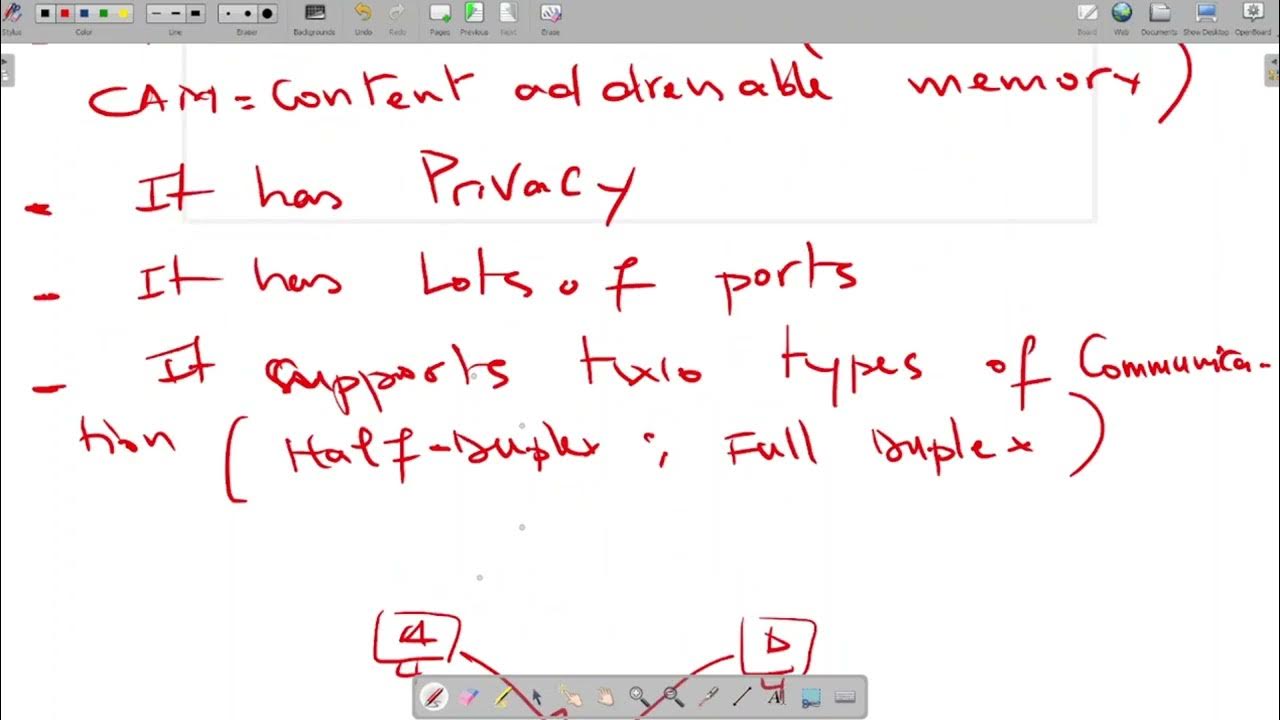 Stylus Color Line Eraser Backgrounds Undo Redo Pages Previous Next Erase Board Web Documents Show Desktop OpenBoard
CAM = Content addressable memory )
- It has Privacy
- It has Lots of ports
- It supports two types of Communica-
tion ( Half-Duplex ; Full Duplex )
A D